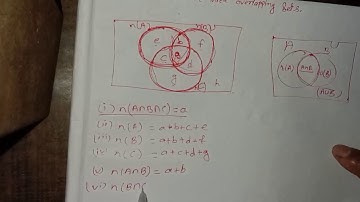 overlapping sets.
n(A)
e b f
a
c d
g
h
A U
n(A) A∩B n(B)
(A∪B)
(i) n(A∩B∩C) = a
(ii) n(A) = a+b+c+e
(iii) n(B) = a+b+d+f
(iv) n(C) = a+c+d+g
(v) n(A∩B) = a+b
(vi) n(B∩